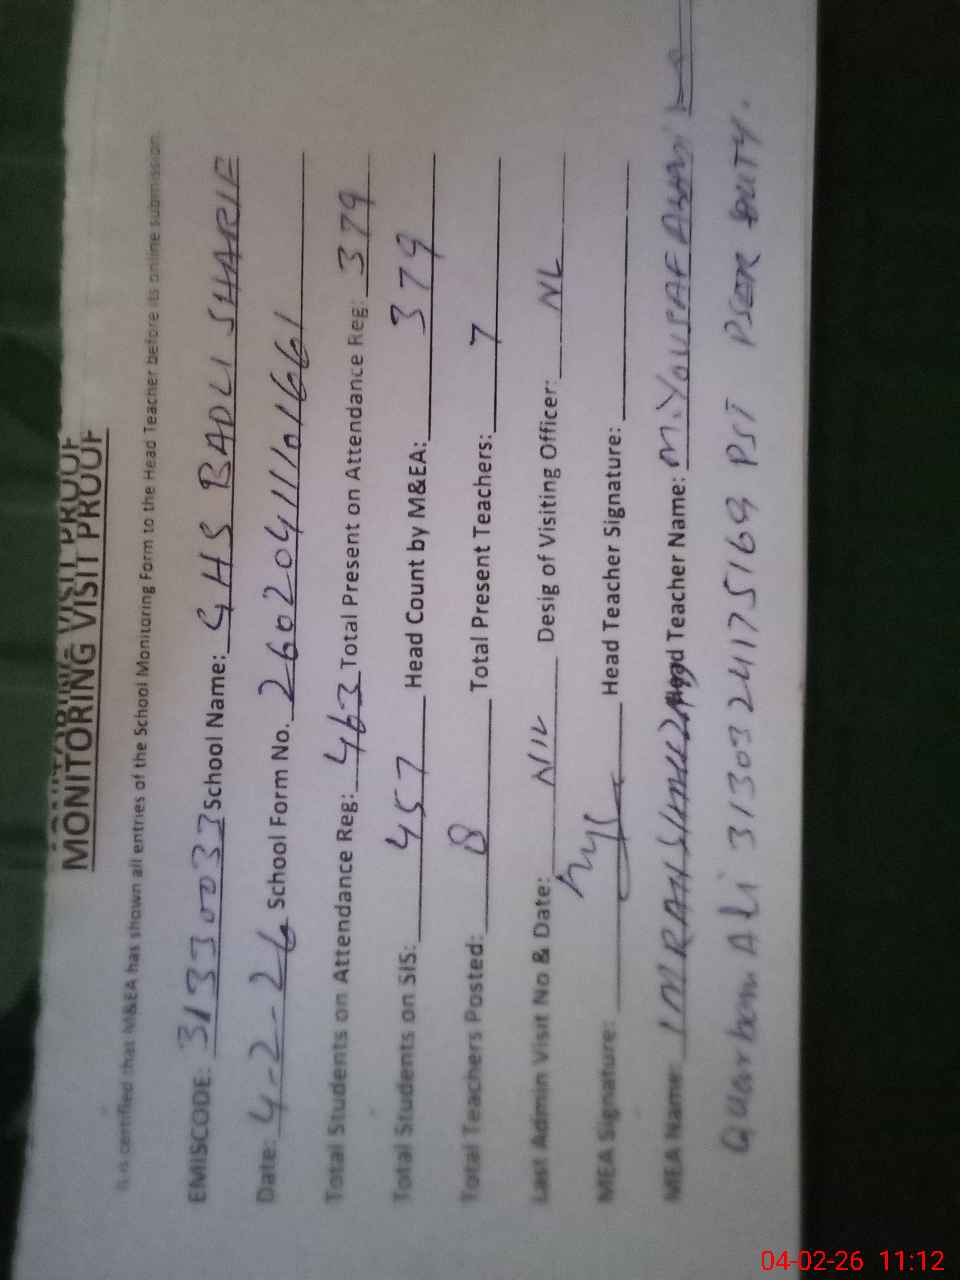 MONITORING VISIT PROOF
MONITORING VISIT PROOF
It is certified that M&EA has shown all entries of the School Monitoring Form to the Head Teacher before its online submission
EMISCODE: 31330033 School Name: GHS BADLI SHARIF
Date: 4-2-26 School Form No. 26020411101661
Total Students on Attendance Reg: 463 Total Present on Attendance Reg: 379
Total Students on SIS: 457 Head Count by M&EA: 379
Total Teachers Posted: 8 Total Present Teachers: 7
Last Admin Visit No & Date: NIL Desig of Visiting Officer: NIL
MEA Signature: Head Teacher Signature:
MEA Name: IMRAN Head Teacher Name: M. YOUSAF
Quarban Ali 3130324175169 PST PSER DUTY.
04-02-26 11:12